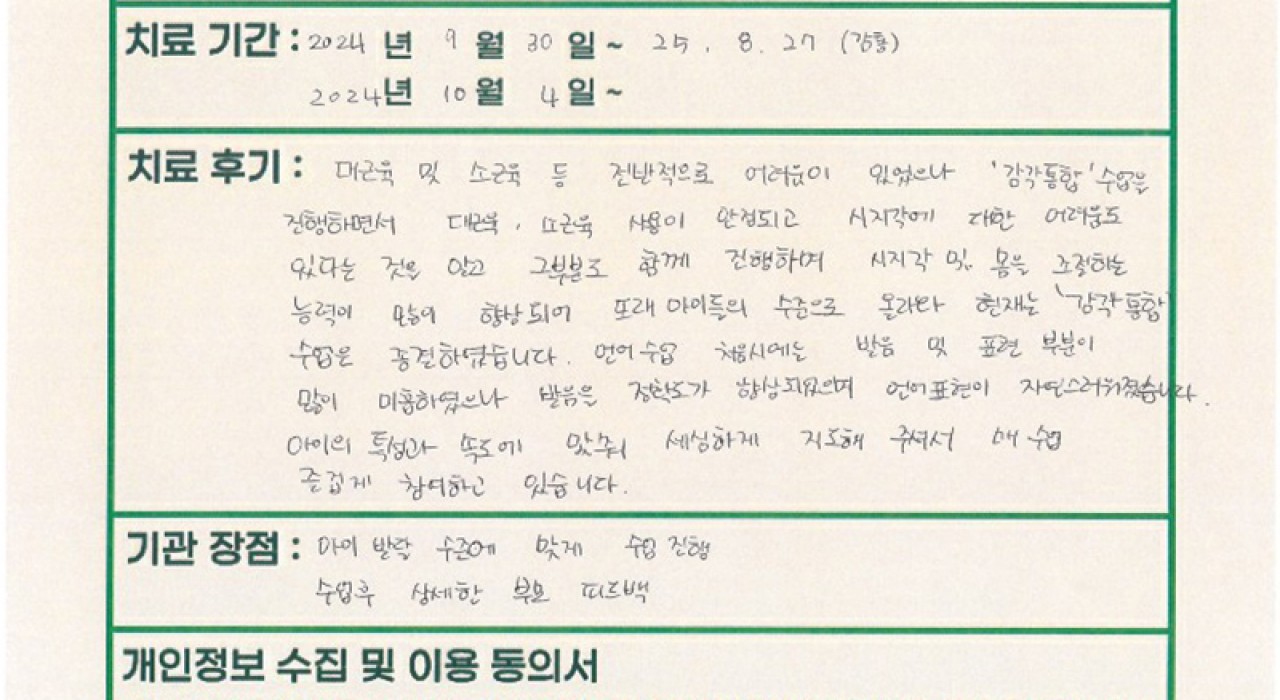 치료 기간 : 2024 년 9 월 30 일 ~ 25. 8. 27 (감통)
2024년 10월 4일 ~
치료 후기 : 대근육 및 소근육 등 전반적으로 어려움이 있었으나 '감각통합' 수업을
진행하면서 대근육, 소근육 사용이 안정되고 시지각에 대한 어려움도
있다는 것을 알고 그부분도 함께 진행하며 시지각 및 몸을 조절하는
능력이 많이 향상되어 또래 아이들의 수준으로 올라와 현재는 '감각통합'
수업은 종결하였습니다. 언어수업 처음시에는 발음 및 표현 부분이
많이 미흡하였으나 발음은 정확도가 향상되었으며 언어표현이 자연스러워졌습니다.
아이의 특성과 속도에 맞춰 세심하게 지도해 주셔서 매 수업
즐겁게 참여하고 있습니다.
기관 장점 : 아이 발달 수준에 맞게 수업 진행
수업후 상세한 부모 피드백
개인정보 수집 및 이용 동의서